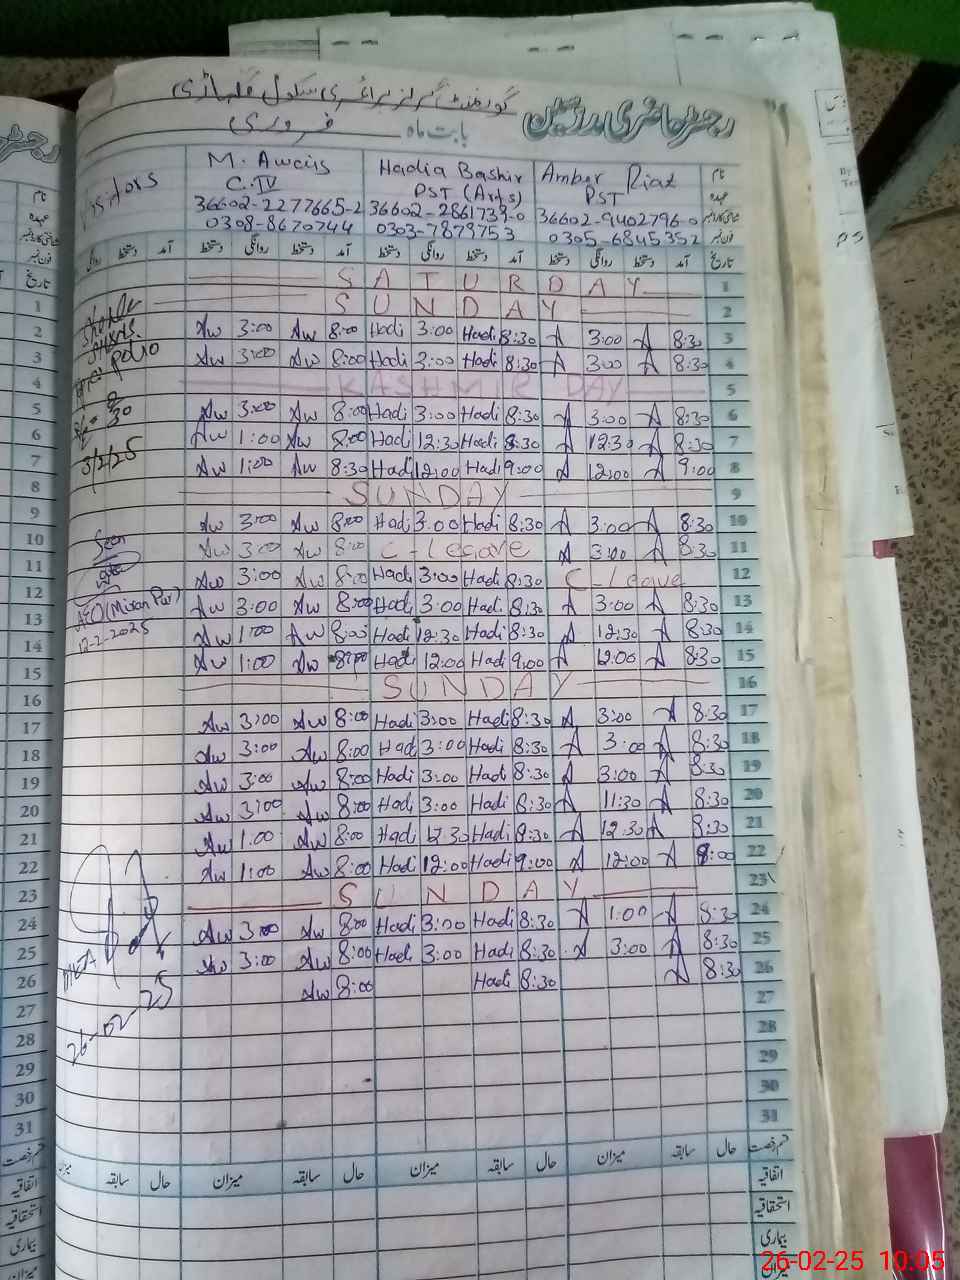 گورنمنٹ گرلز پرائمری سکول
رجسٹر حاضری مدرسین
بابت ماہ فروری
Visitors M. Awais Hadia Bashir Amber Riaz نام
C.IV PST (Arts) PST عہدہ
36602-2277665-2 36602-2861739-0 36602-9402796-0 شناختی کارڈ نمبر
0308-8670744 0303-7879753 0305-6845352 فون نمبر
روانگی دستخط آمد دستخط روانگی دستخط آمد دستخط روانگی دستخط آمد دستخط روانگی دستخط آمد تاریخ
SATURDAY 1
SUNDAY 2
Aw 3:00 Aw 8:00 Hadi 3:00 Hadi 8:30 A 3:00 A 8:30 3
Aw 3:00 Aw 8:00 Hadi 3:00 Hadi 8:30 A 3:00 A 8:30 4
KASHMIR DAY 5
Aw 3:00 Aw 8:00 Hadi 3:00 Hadi 8:30 A 3:00 A 8:30 6
Aw 1:00 Aw 8:00 Hadi 12:30 Hadi 8:30 A 12:30 A 8:30 7
Aw 1:00 Aw 8:30 Hadi 12:00 Hadi 9:00 A 12:00 A 9:00 8
SUNDAY 9
Aw 3:00 Aw 8:00 Hadi 3:00 Hadi 8:30 A 3:00 A 8:30 10
Aw 3:00 Aw 8:00 C-Leave A 3:00 A 8:30 11
Aw 3:00 Aw 8:00 Hadi 3:00 Hadi 8:30 C-Leave 12
Aw 3:00 Aw 8:00 Hadi 3:00 Hadi 8:30 A 3:00 A 8:30 13
Aw 1:00 Aw 8:00 Hadi 12:30 Hadi 8:30 A 12:30 A 8:30 14
Aw 1:00 Aw 8:00 Hadi 12:00 Hadi 9:00 A 12:00 A 8:30 15
SUNDAY 16
Aw 3:00 Aw 8:00 Hadi 3:00 Hadi 8:30 A 3:00 A 8:30 17
Aw 3:00 Aw 8:00 Hadi 3:00 Hadi 8:30 A 3:00 A 8:30 18
Aw 3:00 Aw 8:00 Hadi 3:00 Hadi 8:30 A 3:00 A 8:30 19
Aw 3:00 Aw 8:00 Hadi 3:00 Hadi 8:30 A 11:30 A 8:30 20
Aw 1:00 Aw 8:00 Hadi 12:30 Hadi 8:30 A 12:30 A 8:30 21
Aw 1:00 Aw 8:00 Hadi 12:00 Hadi 9:00 A 12:00 A 8:00 22
SUNDAY 23
Aw 3:00 Aw 8:00 Hadi 3:00 Hadi 8:30 A 1:00 A 8:30 24
Aw 3:00 Aw 8:00 Hadi 3:00 Hadi 8:30 A 3:00 A 8:30 25
Aw 8:00 Hadi 8:30 A 8:30 26
27
28
29
30
31
میزان سابقہ حال میزان سابقہ حال میزان سابقہ حال میزان سابقہ حال قسم رخصت
اتفاقیہ
استحقاقیہ
بیماری
میزان
polio
3/2/25
Seen
AEO (Mian Pur)
12-2-2025
MEA
26-02-25
نام
عہدہ
شناختی کارڈ نمبر
فون نمبر
تاریخ
1
2
3
4
5
6
7
8
9
10
11
12
13
14
15
16
17
18
19
20
21
22
23
24
25
26
27
28
29
30
31
قسم رخصت
اتفاقیہ
استحقاقیہ
بیماری
میزان
26-02-25 10:05